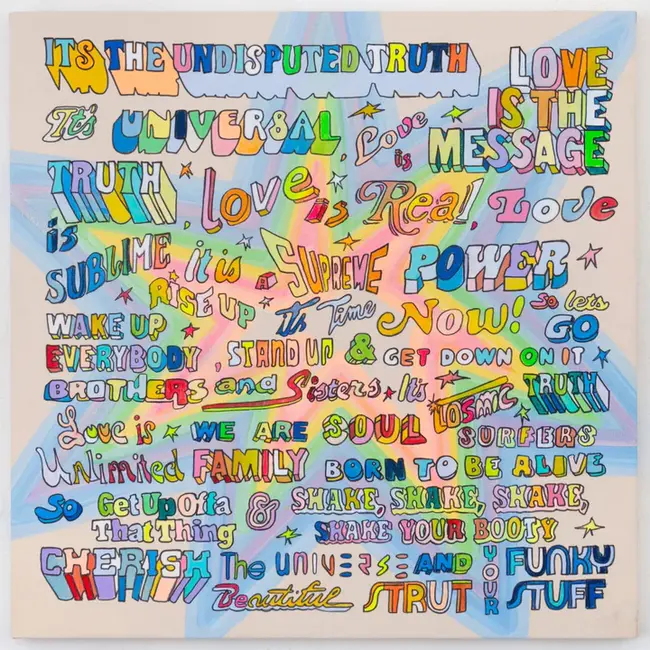 ITS THE UNDISPUTED TRUTH LOVE
IS THE
It's UNIVERSAL, Love is MESSAGE
TRUTH, Love is Real, Love
is
SUBLIME it is a SUPREME POWER
RISE UP It's Time Now! So lets
WAKE UP GO
EVERYBODY, STAND UP & GET DOWN ON IT
BROTHERS and Sisters It's COSMIC TRUTH
Love is WE ARE SOUL SURFERS
Unlimited FAMILY BORN TO BE ALIVE
So Get Up Offa & SHAKE, SHAKE, SHAKE,
That Thing SHAKE YOUR BOOTY
CHERISH The UNIVERSE AND YOUR FUNKY
Beautiful STRUT STUFF